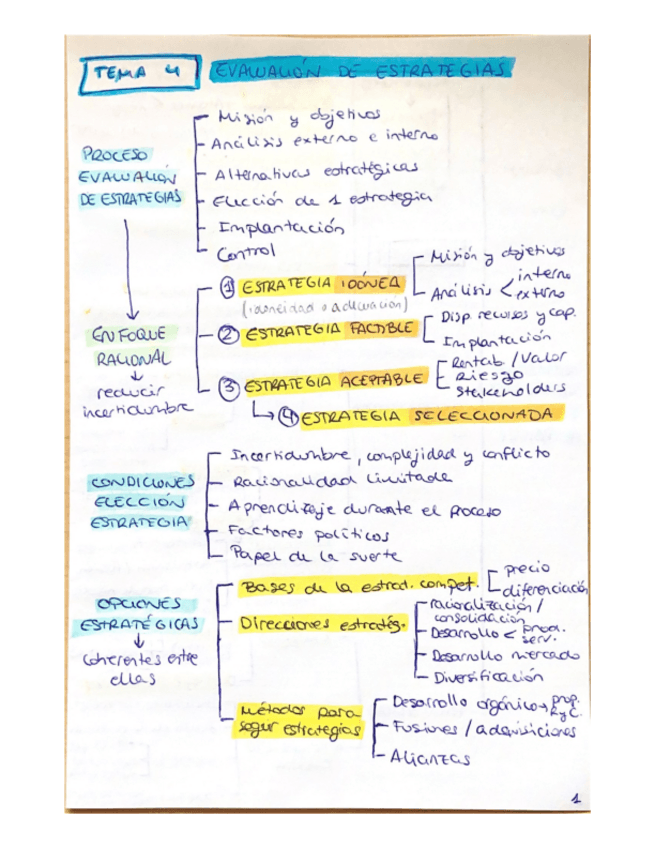 TEMA 4 EVALUACIÓN DE ESTRATEGIAS
PROCESO
EVALUACIÓN
DE ESTRATEGIAS
Misión y objetivos
Análisis externo e interno
Alternativas estratégicas
Elección de 1 estrategia
Implantación
Control
ENFOQUE
RACIONAL
reducir
incertidumbre
① ESTRATEGIA IDÓNEA
(idoneidad o adecuación)
Misión y objetivos
Análisis < interno
externo
② ESTRATEGIA FACTIBLE
Disp. recursos y cap.
Implantación
③ ESTRATEGIA ACEPTABLE
Rentab / Valor
Riesgo
Stakeholders
④ ESTRATEGIA SELECCIONADA
CONDICIONES
ELECCIÓN
ESTRATEGIA
Incertidumbre, complejidad y conflicto
Racionalidad limitada
Aprendizaje durante el proceso
Factores políticos
Papel de la suerte
OPCIONES
ESTRATÉGICAS
Coherentes entre
ellas
Bases de la estrat. compet.
precio
diferenciación
Direcciones estratég.
racionalización /
consolidación
Desarrollo < prod.
serv.
Desarrollo mercado
Diversificación
Métodos para
seguir estrategias
Desarrollo orgánico → prop.
R y C.
Fusiones / adquisiciones
Alianzas
1